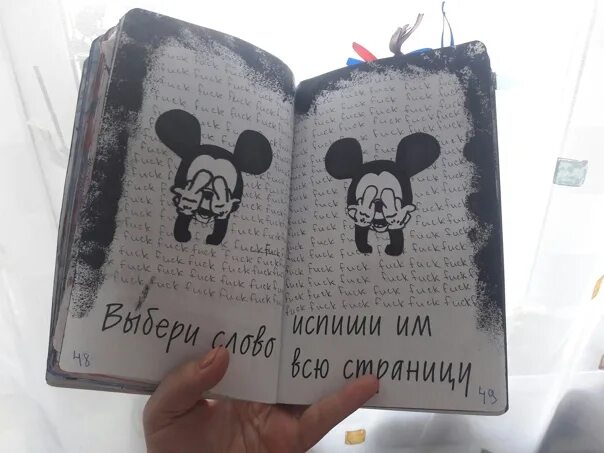 fuck fuck
fuck fuck fuck
fuck fuck fuck fuck
fuck fuck fuck fuck
fuck fuck fuck
fuck fuck
fuck fuck
fuck fuck
fuck fuck
fuck fuck
fuck fuck fuck
fuck fuck fuck fuck
fuck fuck fuck fuck fuck
fuck fuck fuck fuck fuck
Выбери слово
48
fuck fuck fuck
fuck fuck fuck fuck
fuck fuck fuck fuck
fuck fuck fuck
fuck fuck
fuck fuck
fuck fuck
fuck fuck
fuck fuck
fuck fuck fuck
fuck fuck fuck fuck fuck
fuck fuck fuck fuck fuck
fuck fuck fuck fuck fuck
испиши им
всю страницу
49